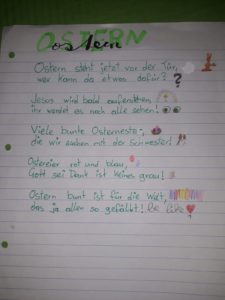 OSTERN
ostern
Ostern steht jetzt vor der Tür,
wer kann da etwas dafür? ?
Jesus wird bald auferstehen,
ihr werdet es noch alle sehen!
Viele bunte Osternester,
die wir suchen mit der Schwester!
Ostereier rot und blau,
Gott sei Dank ist keines grau!
Ostern bunt ist für die Welt,
das ja allen so gefällt!